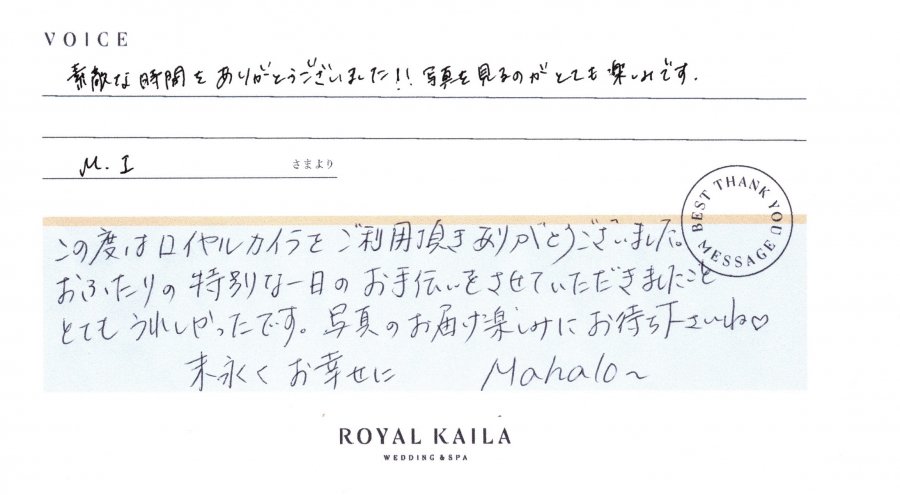 VOICE
素敵な時間をありがとうございました!! 写真を見るのがとても楽しみです.
M. I さまより
BEST THANK YOU MESSAGE
この度はロイヤルカイラをご利用頂きありがとうございました。
おふたりの特別な一日のお手伝いをさせていただきましたこと
とてもうれしかったです。写真のお届け楽しみにお待ち下さいね♡
末永くお幸せに Mahalo～
ROYAL KAILA
WEDDING & SPA